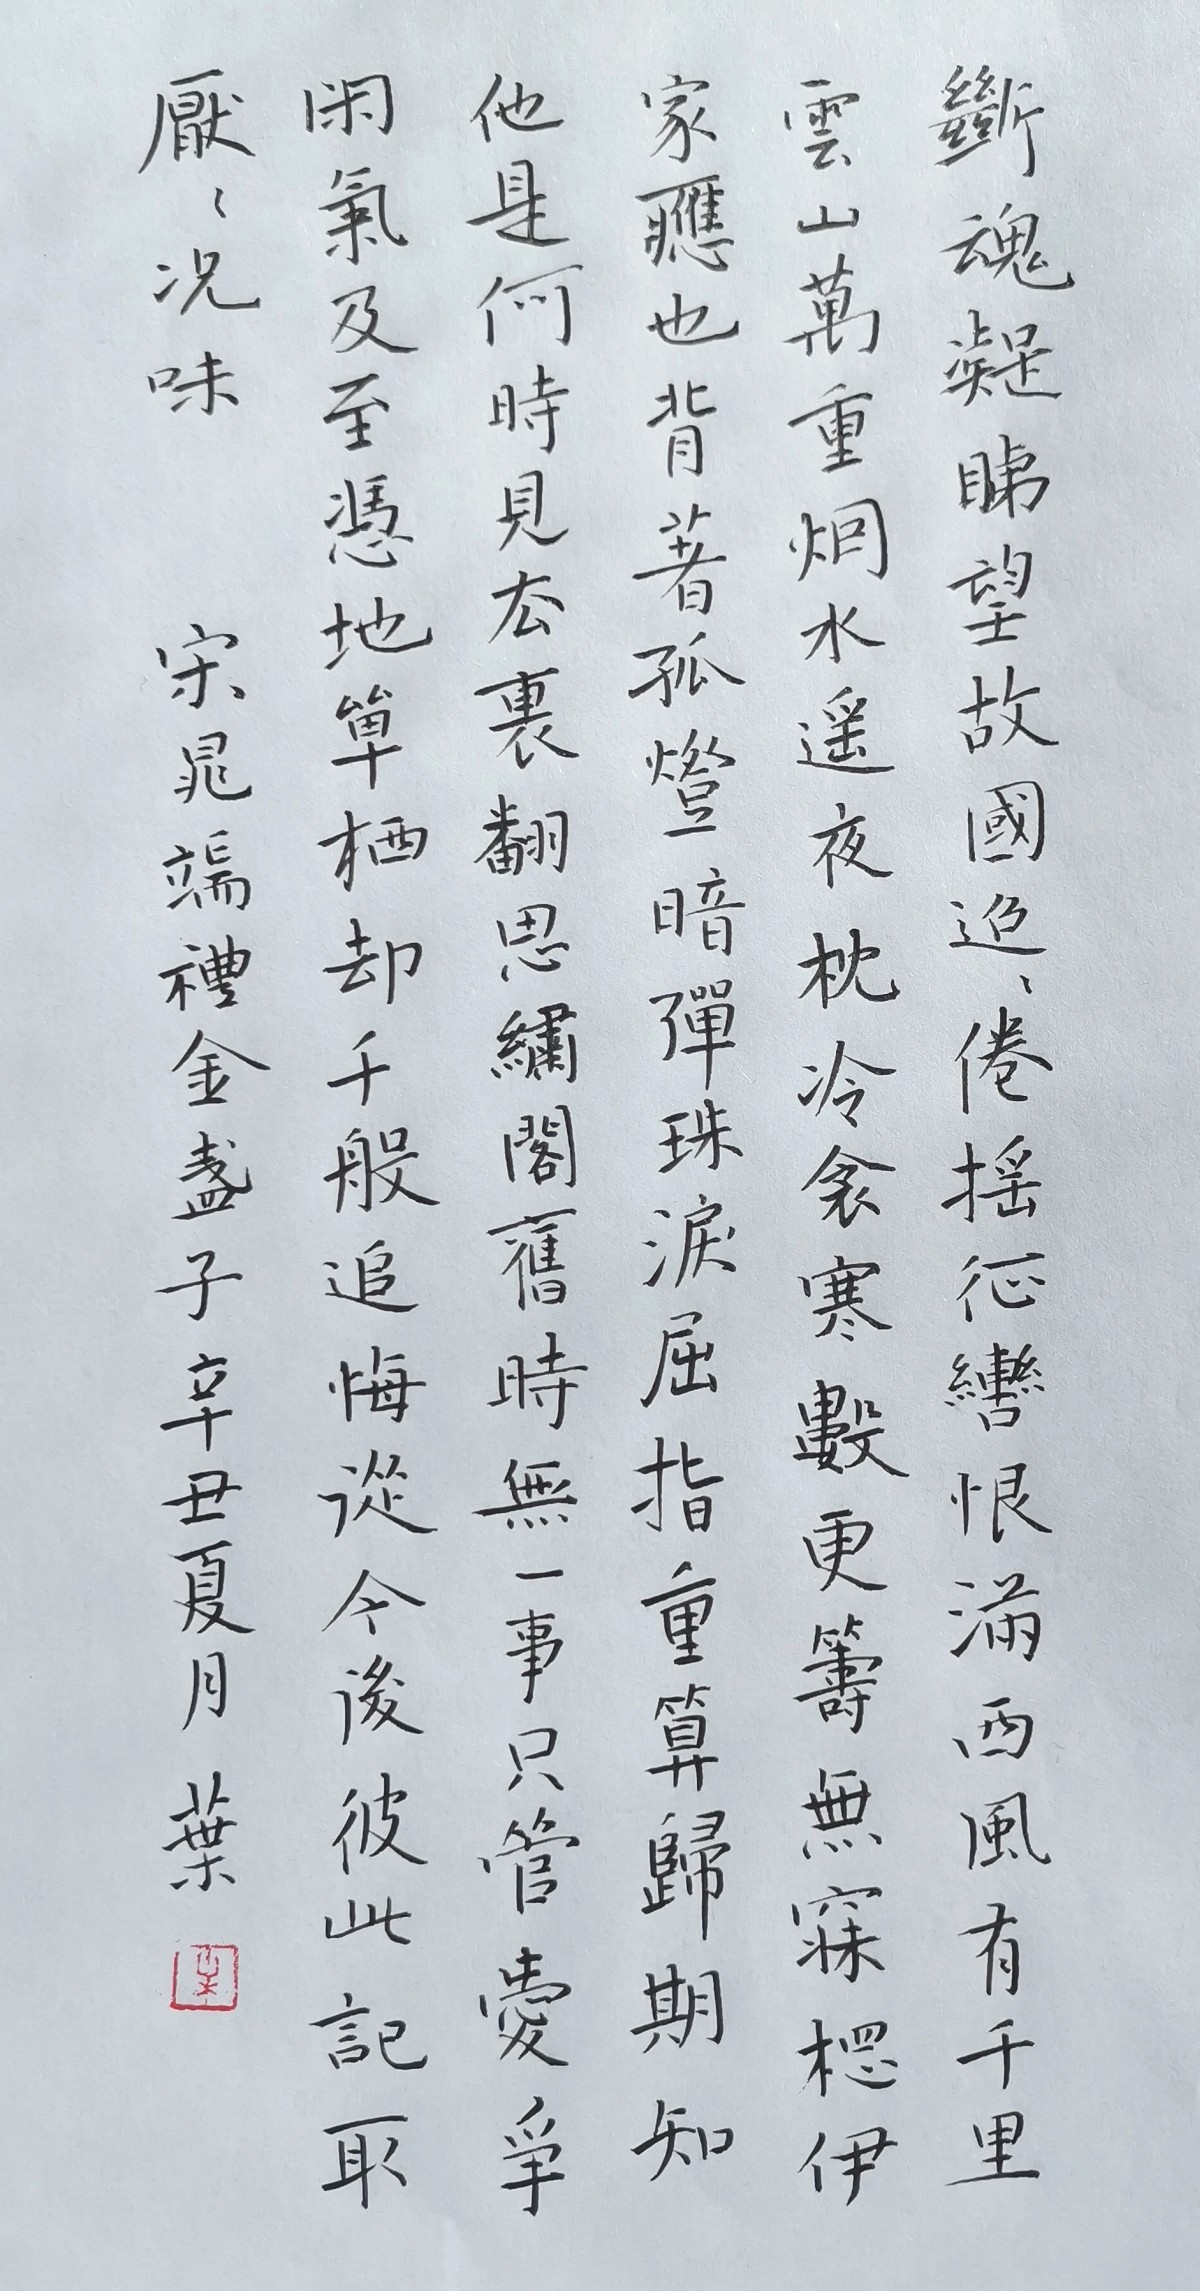 斷魂凝睇望故國迢〻倦揺征轡恨滿西風有千里
雲山萬重烟水遥夜枕冷衾寒數更籌無寐想伊
家應也背著孤燈暗彈珠淚屈指重算歸期知
他是何時見厺裏翻思繡閣舊時無一事只管愛爭
閑氣及至憑地單栖却千般追悔從今後彼此記取
厭〻况味　宋晁端禮金盞子辛丑夏月　葉